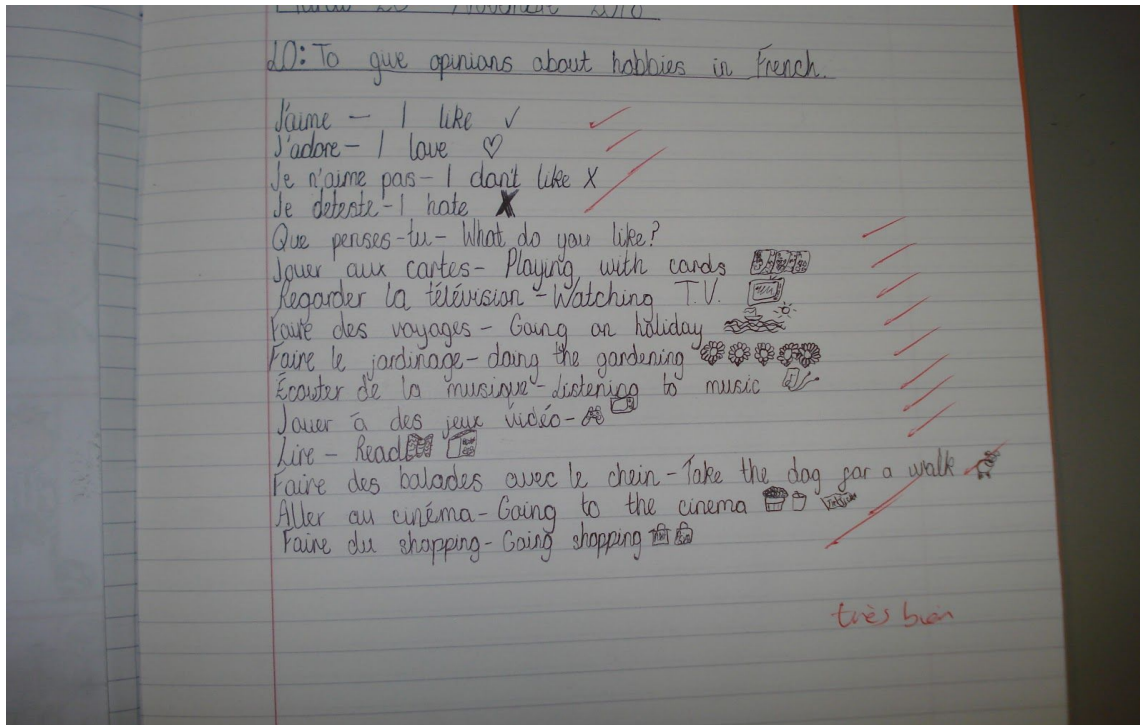 LO: To give opinions about hobbies in French.
J'aime – I like
J'adore – I love
Je n'aime pas – I don't like X
Je deteste – I hate X
Que penses-tu – What do you like?
Jouer aux cartes – Playing with cards
Regarder la télévision – Watching T.V.
Faire des voyages – Going on holiday
Faire le jardinage – doing the gardening
Écouter de la musique – Listening to music
Jouer à des jeux vidéo –
Lire – Read
Faire des balades avec le chein – Take the dog for a walk
Aller au cinéma – Going to the cinema
Faire du shopping – Going shopping
très bien